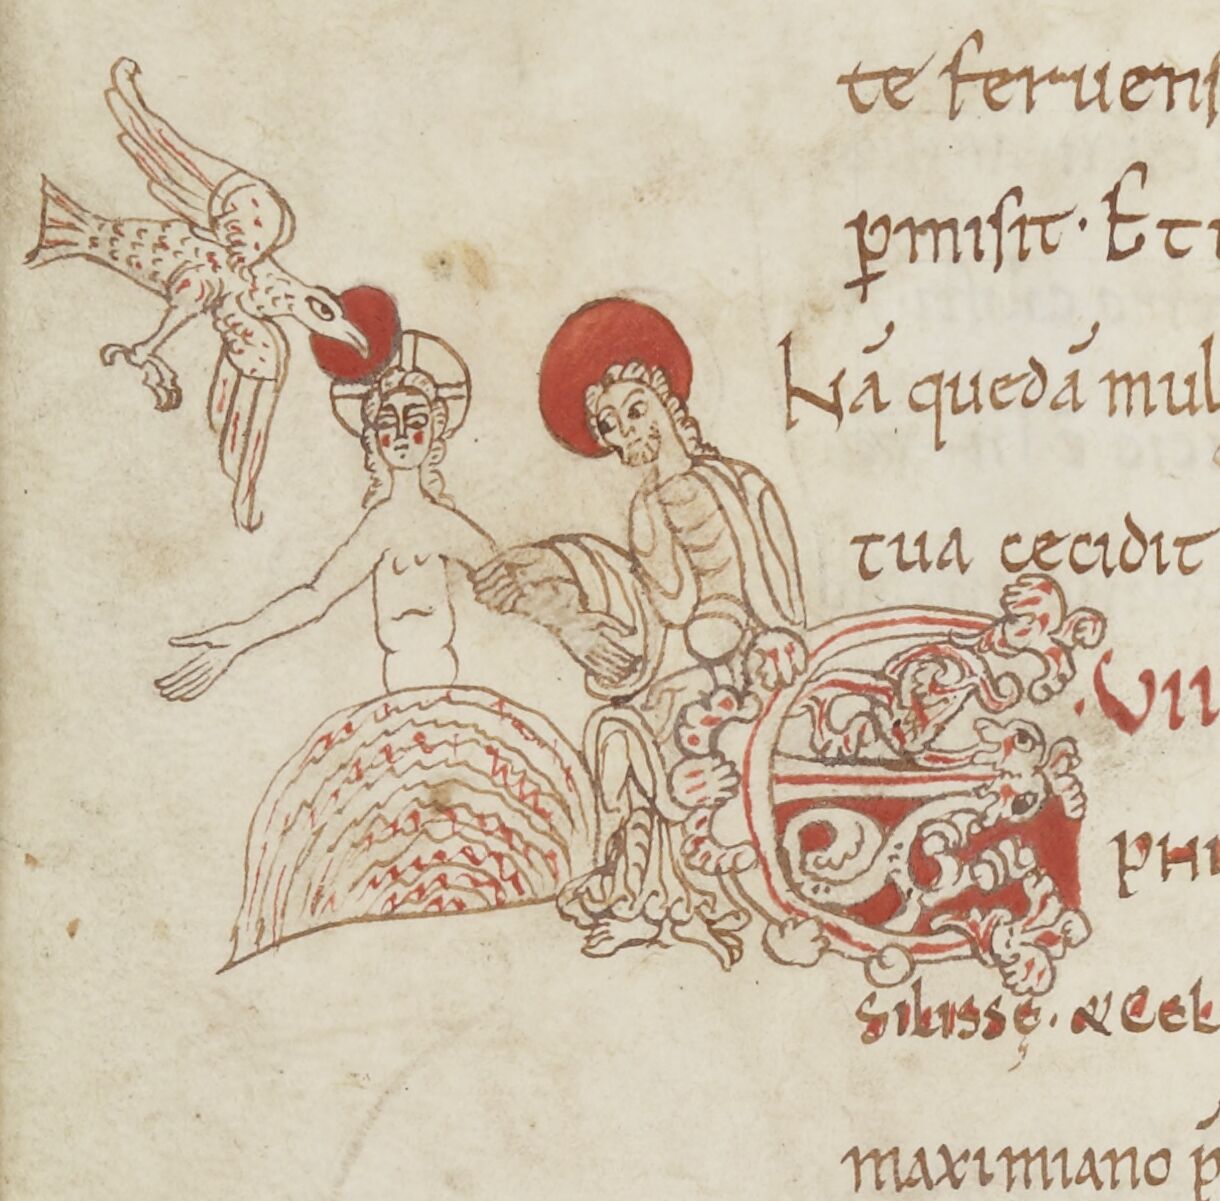 te feruens
ꝑmisit. Et i
Nā quedā mul
tua cecidit
.VII
E PHI
silisse. & Cel
maximiano p̄